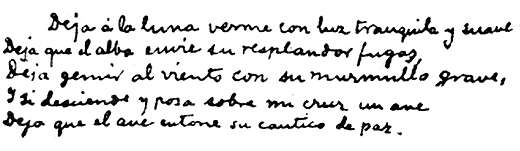 Deja á la luna verme con luz tranquila y suave
Deja que el alba envie su resplandor fugaz,
Deja gemir al viento con su murmullo grave,
Y si desciende y posa sobre mi cruz un ave
Deja que el ave entone su cantico de paz.